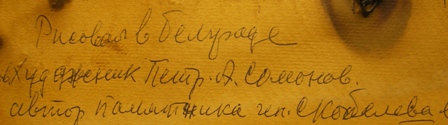 Рисовал в Белграде
Художник Петр. А. Самонов.
автор памятника ген. Скобелева.